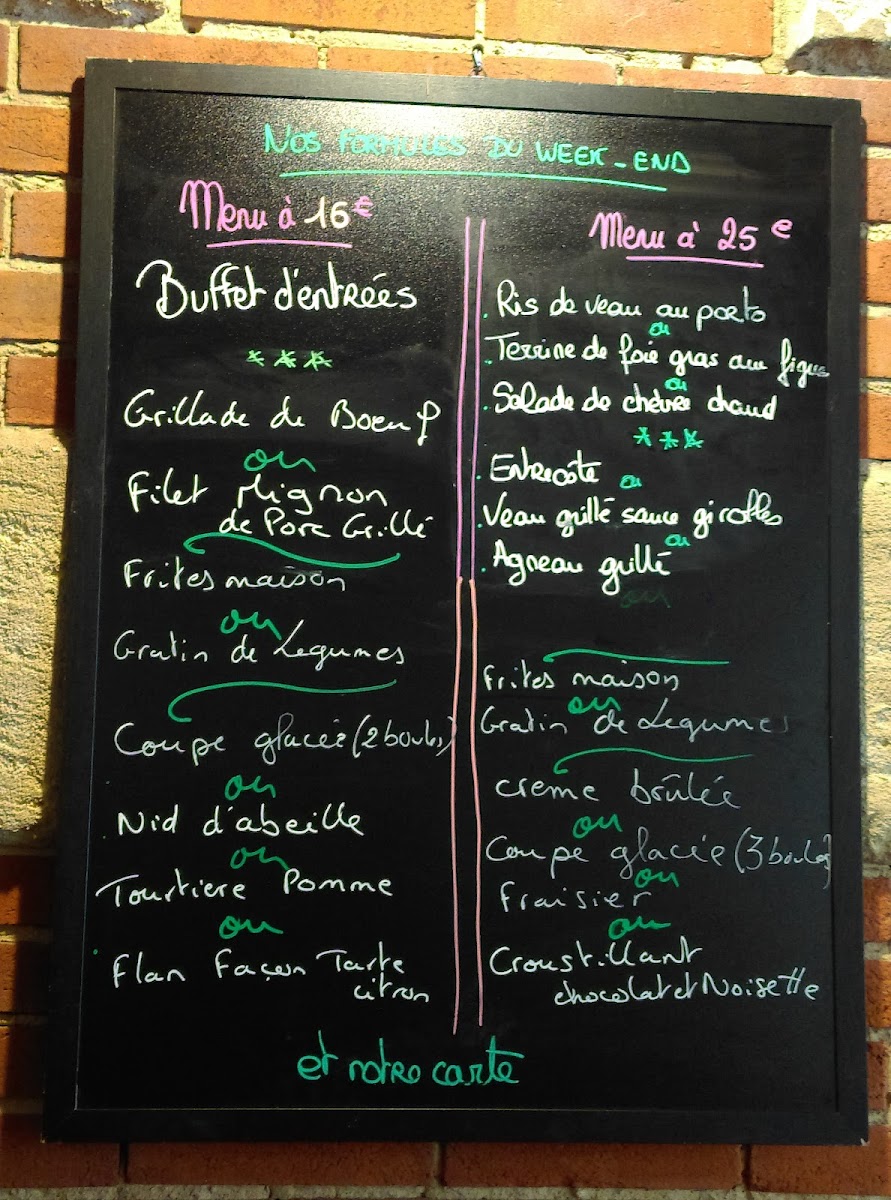 NOS FORMULES DU WEEK-END
Menu à 16€
Buffet d'entrées
***
Grillade de Boeuf
ou
Filet Mignon
de Porc Grillé
Frites maison
ou
Gratin de Legumes
Coupe glacée (2 boules)
ou
Nid d'abeille
ou
Tourtiere Pomme
ou
Flan Façon Tarte
citron
Menu à 25€
. Ris de veau au porto
ou
. Terrine de foie gras aux figues
ou
. Salade de chèvre chaud
***
. Entrecôte
ou
. Veau grillé sauce girolles
ou
. Agneau grillé
ou
Frites maison
ou
Gratin de Legumes
creme brûlée
ou
Coupe glacée (3 boules)
ou
Fraisier
ou
Croustillant
chocolat et Noisette
et notre carte